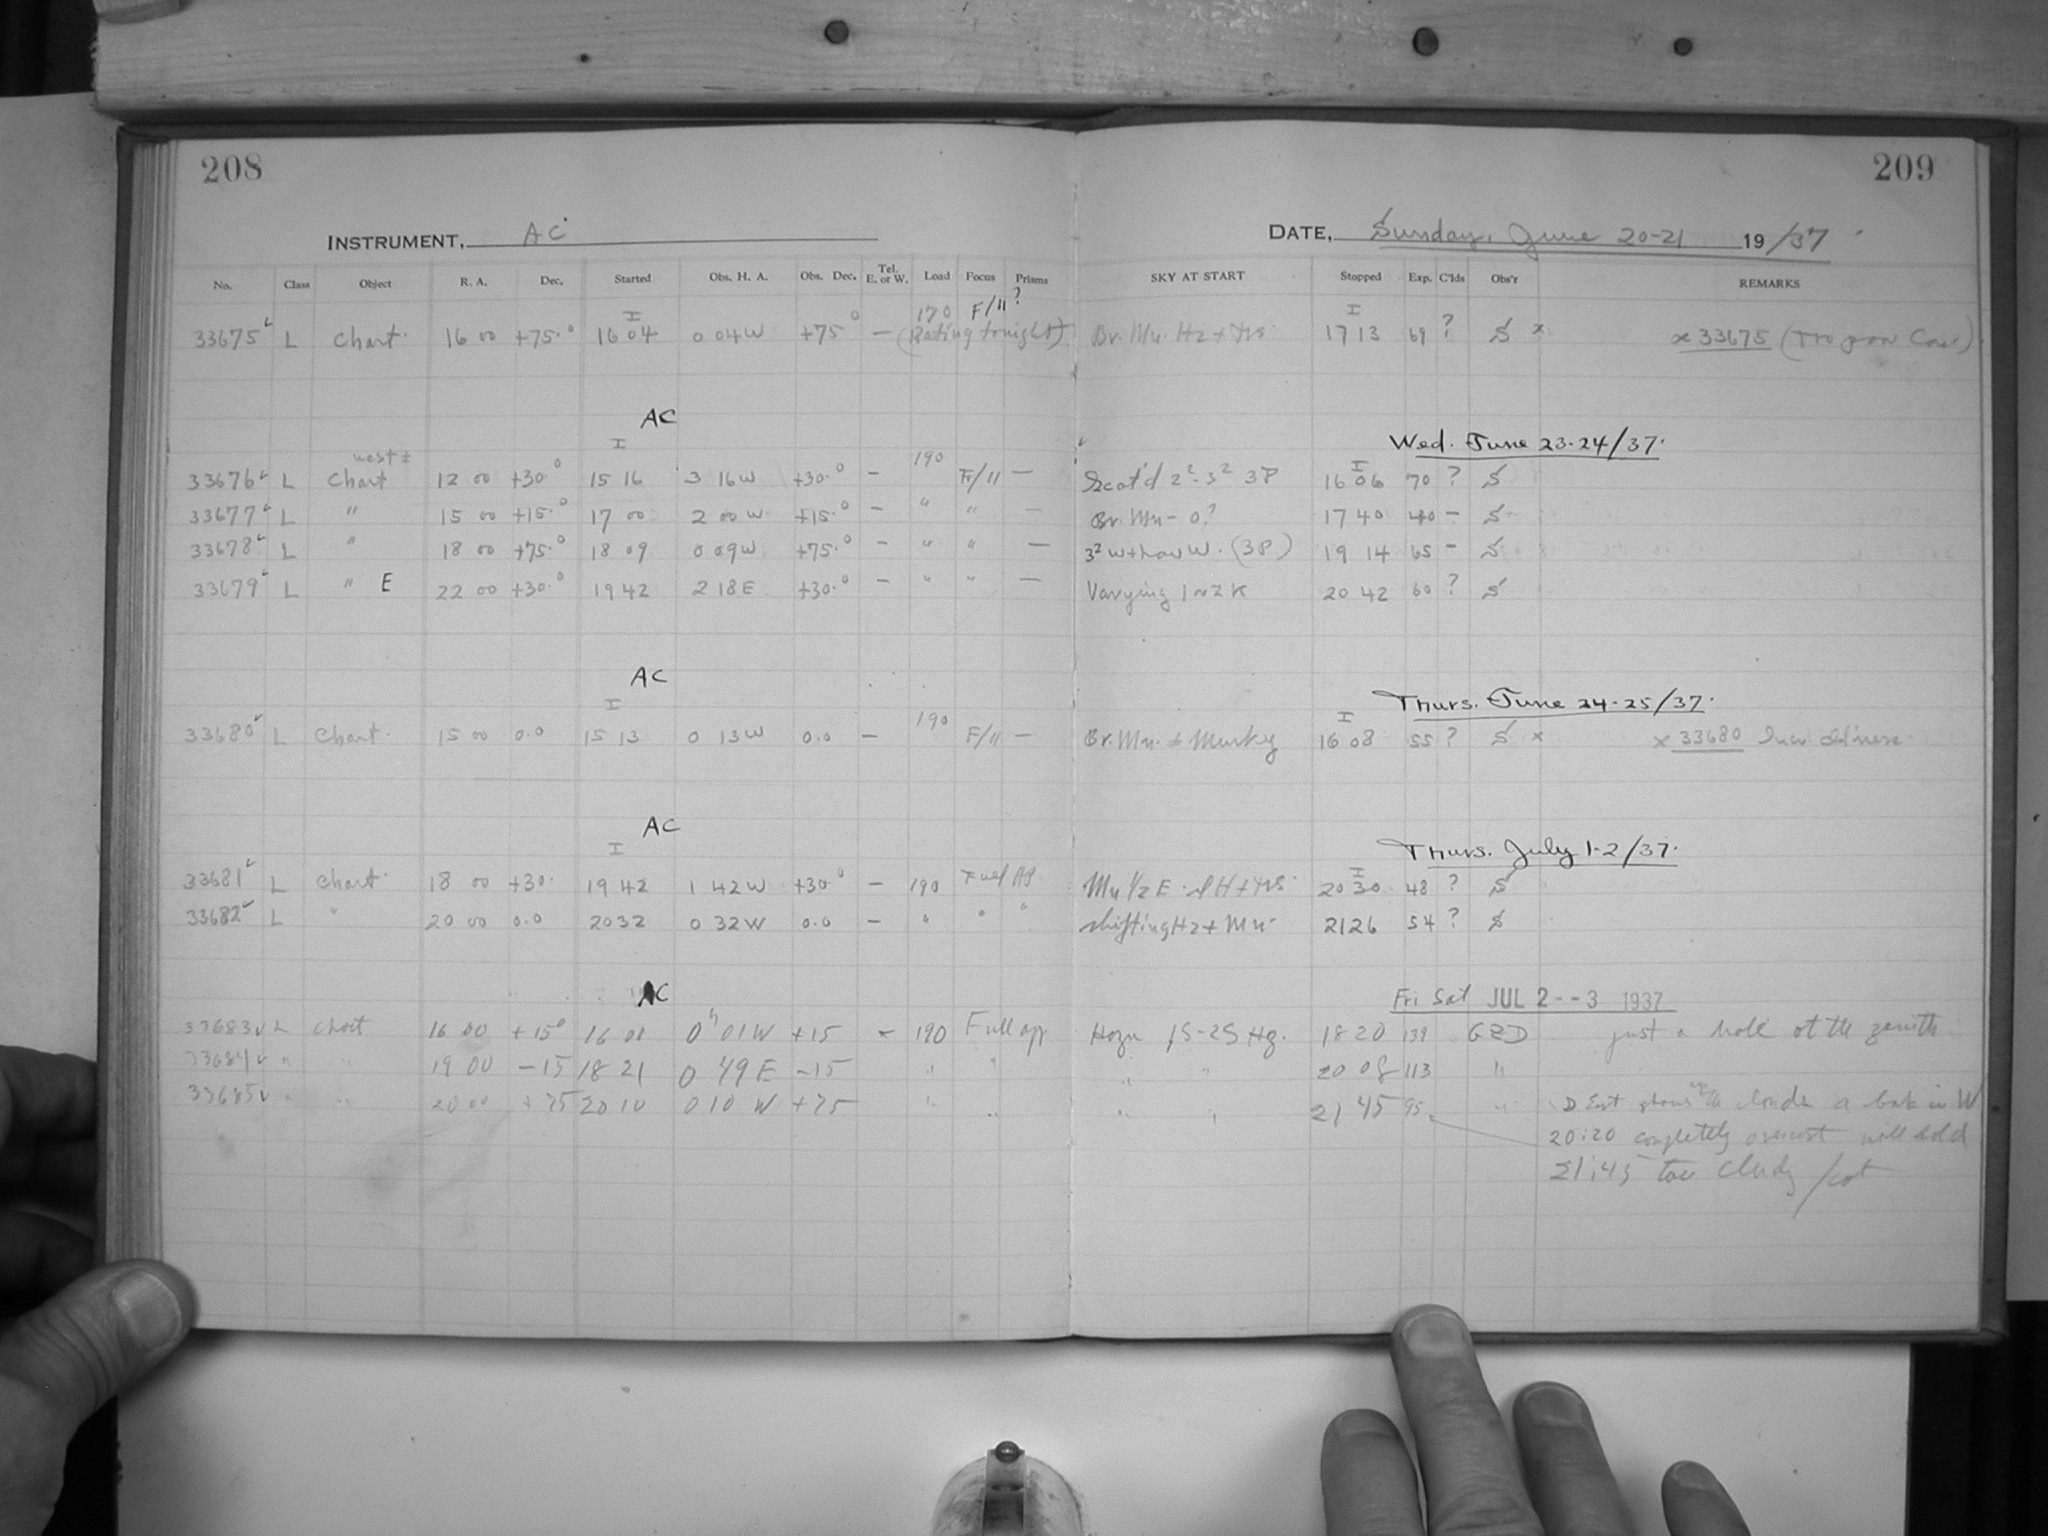 208
209
INSTRUMENT, AC
DATE, Sunday, June 20-21 19/37
No. Class Object R. A. Dec. Started Obs. H. A. Obs. Dec. Tel. E. or W. Load Focus Prisms SKY AT START Stopped Exp. C'lds Obs'r REMARKS
I 170 F/11 ? I
33675 L Chart. 16 00 +75.° 16 04 0 04W +75° — (Rating tonight) Br. Mn. Hz + 17 13 69 ? S x x 33675
AC
I Wed. June 23-24/37.
west ± 190 I
33676 L Chart 12 00 +30.° 15 16 3 16W +30.° — F/11 — Scat'd 2²-3² 3P 16 06 70 ? S
33677 L " 15 00 +15.° 17 00 2 00 W +15.° — " " — Br. Mn - 0? 17 40 40 — S
33678 L " 18 00 +75.° 18 09 0 09W +75.° — " " — 3² W + low W. (3P) 19 14 65 — S
33679 L " E 22 00 +30.° 19 42 2 18E +30.° — " " — Varying 1 2 K 20 42 60 ? S
AC
I Thurs. June 24-25/37.
190 I
33680 L Chart. 15 00 0.0 15 13 0 13W 0.0 — F/11 — Br. Mn. ± Murky 16 08 55 ? S x x 33680
AC
I Thurs. July 1-2/37.
I
33681 L Chart. 18 00 +30. 19 42 1 42W +30° — 190 Full Ap Mn 1/2 E 20 30 48 ? S
33682 L " 20 00 0.0 20 32 0 32W 0.0 — " " " shifting Hz + Mn 21 26 54 ? S
AC
Fri Sat JUL 2--3 1937
33683 L Chart 16 00 +15° 16 01 0ʰ 01W +15 — 190 Full ap 18 20 139 GZD just a hole at the zenith
33684 " " 19 00 -15 18 21 0 49E -15 " " " " 20 08 113 "
33685 " " 20 00 +75 20 10 0 10 W +75 " " " " 21 45 95 " East clouds a in W
20:20 completely overcast will hold
21:45 too cludy